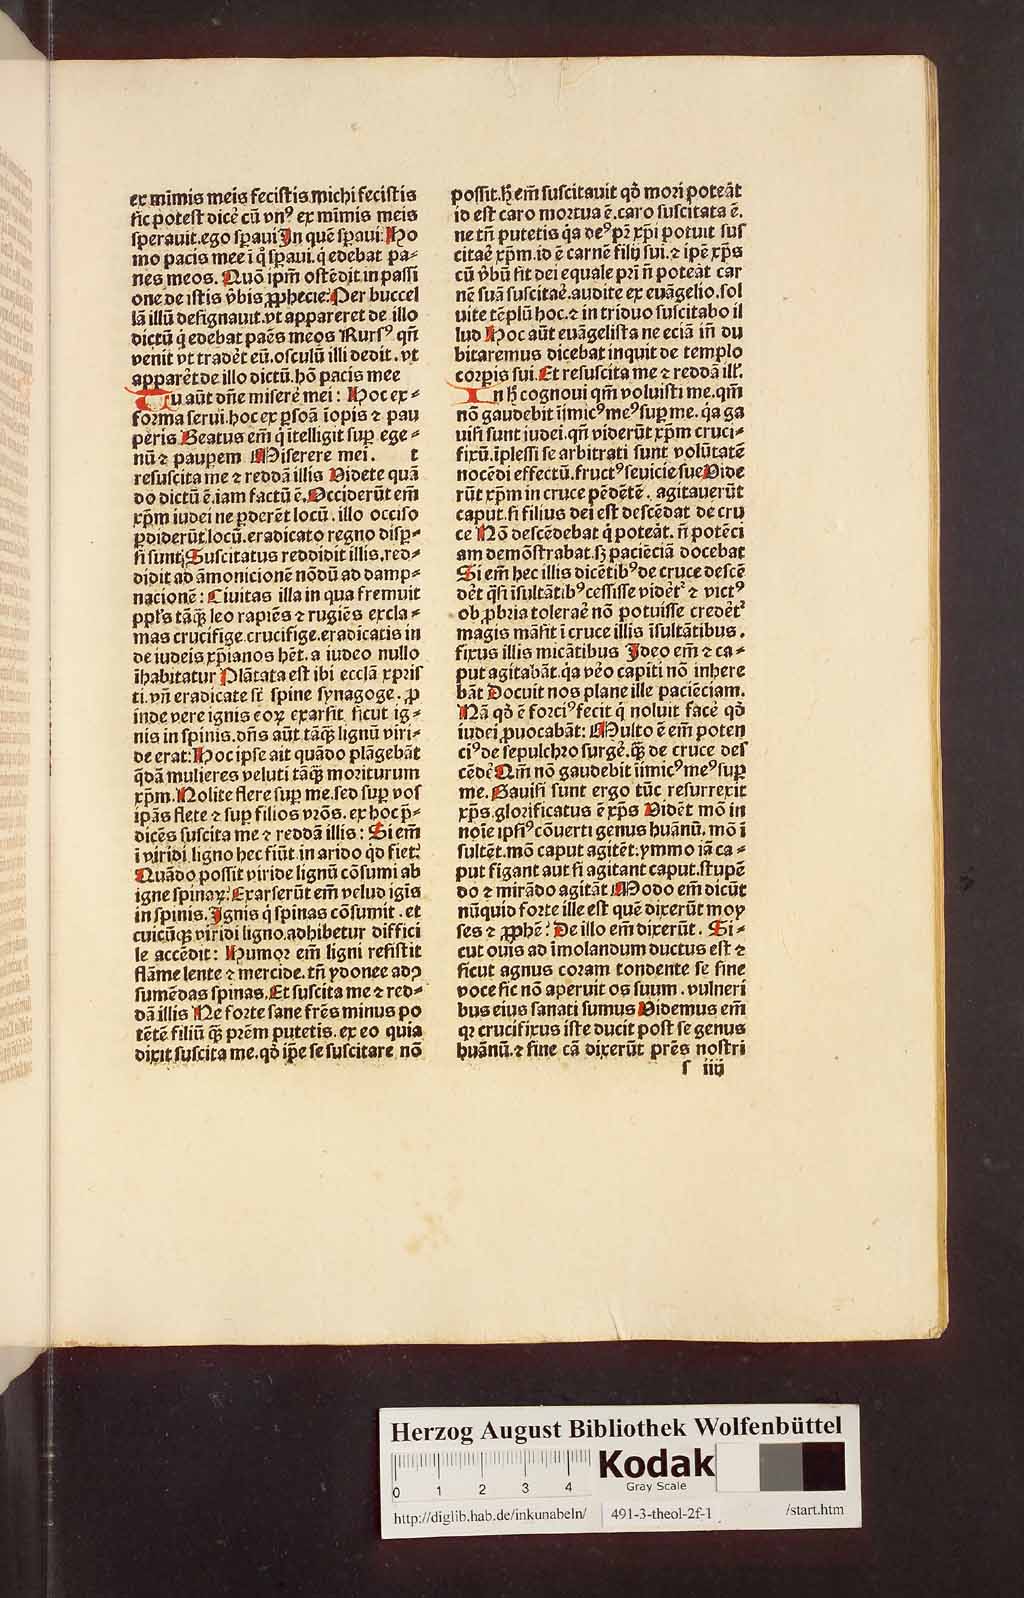 ex mīmis meis fecistis michi fecistis
sic potest dicē cū vnꝰ ex mīmis meis
sperauit.ego sꝑaui In quē sꝑaui. Ho
mo pacis mee ī q̊ sꝑaui.q̇ edebat pa⸗
nes meos. Quō ip̄m ostēdit in passi
one de istis v̄bis ꝓphecie: Per buccel
lā illū designauit.vt appareret de illo
dictū q̇ edebat paēs meos Rursꝰ qn̄
venit vt tradēt eū.osculū illi dedit.vt
apparēt de illo dictū.hō pacis mee
Tu aūt dn̄e miserē mei: Hoc ex⸗
forma serui.hoc ex ꝑsoā īopis ⁊ pau
peris Beatus em̄ q̇ ītelligit suꝑ ege⸗
nū ⁊ pauꝑem Miserere mei. t
resuscita me ⁊ reddā illis Videte quā
do dictū ē.iam factū ē. Occiderūt em̄
xp̄m iudei ne ꝑderēt locū.illo occiso
ꝑdiderūt locū.eradicato regno disꝑ⸗
si sunt; Suscitatus reddidit illis.red⸗
didit ad āmonicionē nōdū ad damp⸗
nacionē: Ciuitas illa in qua fremuit
ppl's tāqꝫ leo rapiēs ⁊ rugiēs excla⸗
mas crucifige.crucifige.eradicatis in
de iudeis xp̄ianos hēt.a iudeo nullo
īhabitatur Plātata est ibi eccl̄ā xpris
ti.vn̄ eradicate sr̄ spine synagoge. ꝓ
inde vere ignis eoꝝ exarsit sicut ig⸗
nis in spinis.dn̄s aūt tāqꝫ lignū viri⸗
de erat: Hoc ipse ait quādo plāgebāt
q̄dā mulieres veluti tāqꝫ moriturum
xp̄m. Nolite flere suꝑ me.sed suꝑ vos
ip̄as flete ⁊ suꝑ filios vr̄os. ex hoc p̄⸗
dicēs suscita me ⁊ reddā illis: Si em̄
ī viridi ligno hec fiūt.in arido qd̄ fiet:
Quādo possit viride lignū cōsumi ab
igne spinaꝝ: Exarserūt em̄ velud igīs
in spinis. Ignis q̇ spinas cōsumit.et
cuicūqꝫ viridi ligno.adhibetur diffici
le accēdit: Humor em̄ ligni resistit
flāme lente ⁊ mercide.tn̄ ydonee adꝯ
sumēdas spinas. Et suscita me ⁊ red⸗
dā illis Ne forte sane fr̄es minus po
tētē filiū qꝫ pr̄em putetis.ex eo quia
dixit suscita me.qd̄ ip̄e se suscitare nō
possit.h̄ em̄ suscitauit qd̄ mori poteāt
id est caro mortua ē.caro suscitata ē.
ne tn̄ putetis q̇a deꝰ pr̄ xp̄i potuit sus
citaē xp̄m.id ē carnē filij sui.⁊ ip̄e xp̄s
cū v̄bū sit dei equale pr̄i n̄ poteāt car
nē suā suscitaē.audite ex euāgelio.sol
uite tēplū hoc.⁊ in triduo suscitabo il
lud Hoc aūt euāgelista ne eciā in̄ du
bitaremus dicebat inquit de templo
corꝑis sui. Et resuscita me ⁊ reddā ill'.
In h̄ cognoui qm̄ voluisti me.qm̄
nō gaudebit īimicꝰ meꝰ suꝑ me. q̇a ga
uisi sunt iudei.qn̄ viderūt xp̄m cruci⸗
fixū.īplessi se arbitrati sunt volūtatē
nocēdi effectū.fructꝰ seuicie sue Vide
rūt xp̄m in cruce pēdētē. agitauerūt
caput.si filius dei est descēdat de cru
ce Nō descēdebat q̇ poteāt. n̄ potēci
am demōstrabat.sꝫ paciēciā docebat
Si em̄ hec illis dicētibꝰ de cruce descē
dēt q̄si īsultātibꝰ cessisse vidēt̄ ⁊ victꝰ
ob ꝓbria toleraē nō potuisse credēt̄
magis māsit ī cruce illis īsultātibus.
fixus illis micātibus Ideo em̄ ⁊ ca⸗
put agitabāt.q̇a vēo capiti nō inhere
bāt Docuit nos plane ille paciēciam.
Nā qd̄ ē forciꝰ fecit q̇ noluit facē qd̄
iudei ꝓuocabāt: Multo ē em̄ poten
ciꝰ de sepulchro surgē.qꝫ de cruce des
cēdē Qm̄ nō gaudebit īimicꝰ meꝰ suꝑ
me. Gauisi sunt ergo tūc resurrexit
xp̄s.glorificatus ē xp̄s Vidēt mō in
noīe ipsiꝰ cōuerti genus huānū.mō ī
sultēt.mō caput agitēt.ymmo iā ca⸗
put figant aut si agitant caput.stupē
do ⁊ mirādo agitāt Modo em̄ dicūt
nūquid forte ille est quē dixerūt moy
ses ⁊ ꝓphē: De illo em̄ dixerūt. Si⸗
cut ouis ad īmolandum ductus est ⁊
sicut agnus coram tondente se sine
voce sic nō aperuit os suum.vulneri
bus eius sanati sumus Videmus em̄
qꝛ crucifixus iste ducit post se genus
huānū.⁊ sine cā dixerūt pr̄es nostri
s iiij
Herzog August Bibliothek Wolfenbüttel
0 1 2 3 4
Kodak
Gray Scale
http://diglib.hab.de/inkunabeln/ 491-3-theol-2f-1 /start.htm